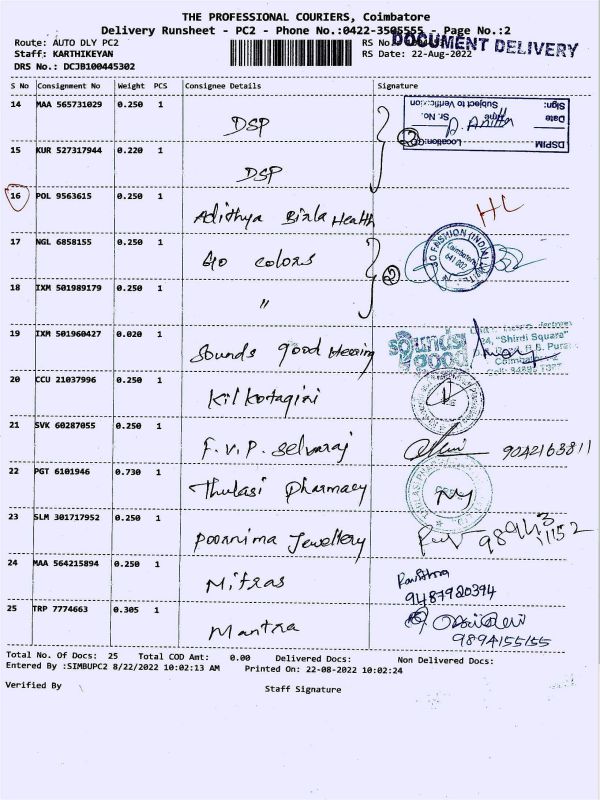 THE PROFESSIONAL COURIERS, Coimbatore
Delivery Runsheet - PC2 - Phone No.:0422-3505555 - Page No.:2
Route: AUTO DLY PC2
DOCUMENT DELIVERY
Staff: KARTHIKEYAN
RS Date: 22-Aug-2022
DRS No.: DCJB100445302
S No Consignment No Weight PCS Consignee Details Signature
14 MAA 565731029 0.250 1 DSP
DSPIM Location:
Sr. No. Date
Subject to Verification Sign:
15 KUR 527317944 0.220 1 DSP
16 POL 9563615 0.250 1 Adithya Birla Health HL
17 NGL 6858155 0.250 1 Go colors
Coimbatore 641 002
18 IXM 501989179 0.250 1 "
19 IXM 501960427 0.020 1 Sounds good Hearing
sounds good
"Shirdi Square"
20 CCU 21037996 0.250 1 Kil Kotagiri
21 SVK 60287055 0.250 1 F.V.P. Selvaraj 9042163811
22 PGT 6101946 0.730 1 Thulasi Pharmacy
23 SLM 301717952 0.250 1 Poornima Jewellery
24 MAA 564215894 0.250 1 Mitras
9487920394
25 TRP 7774663 0.305 1 Mantra
9894155155
Total No. Of Docs: 25 Total COD Amt: 0.00 Delivered Docs: Non Delivered Docs:
Entered By :SIMBUPC2 8/22/2022 10:02:13 AM Printed On: 22-08-2022 10:02:24
Verified By Staff Signature